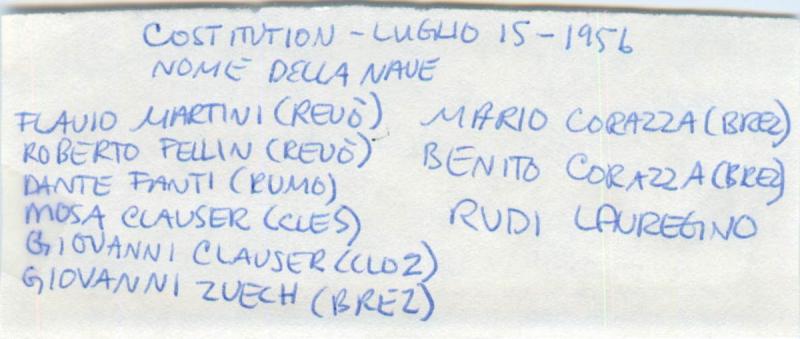 COSTITUTION - LUGLIO 15 - 1956
NOME DELLA NAVE
FLAVIO MARTINI (REVÒ)
ROBERTO FELLIN (REVÒ)
DANTE FANTI (RUMO)
MOSA CLAUSER (CLES)
GIOVANNI CLAUSER (CLOZ)
GIOVANNI ZUECH (BREZ)
MARIO CORAZZA (BREZ)
BENITO CORAZZA (BREZ)
RUDI LAUREGINO